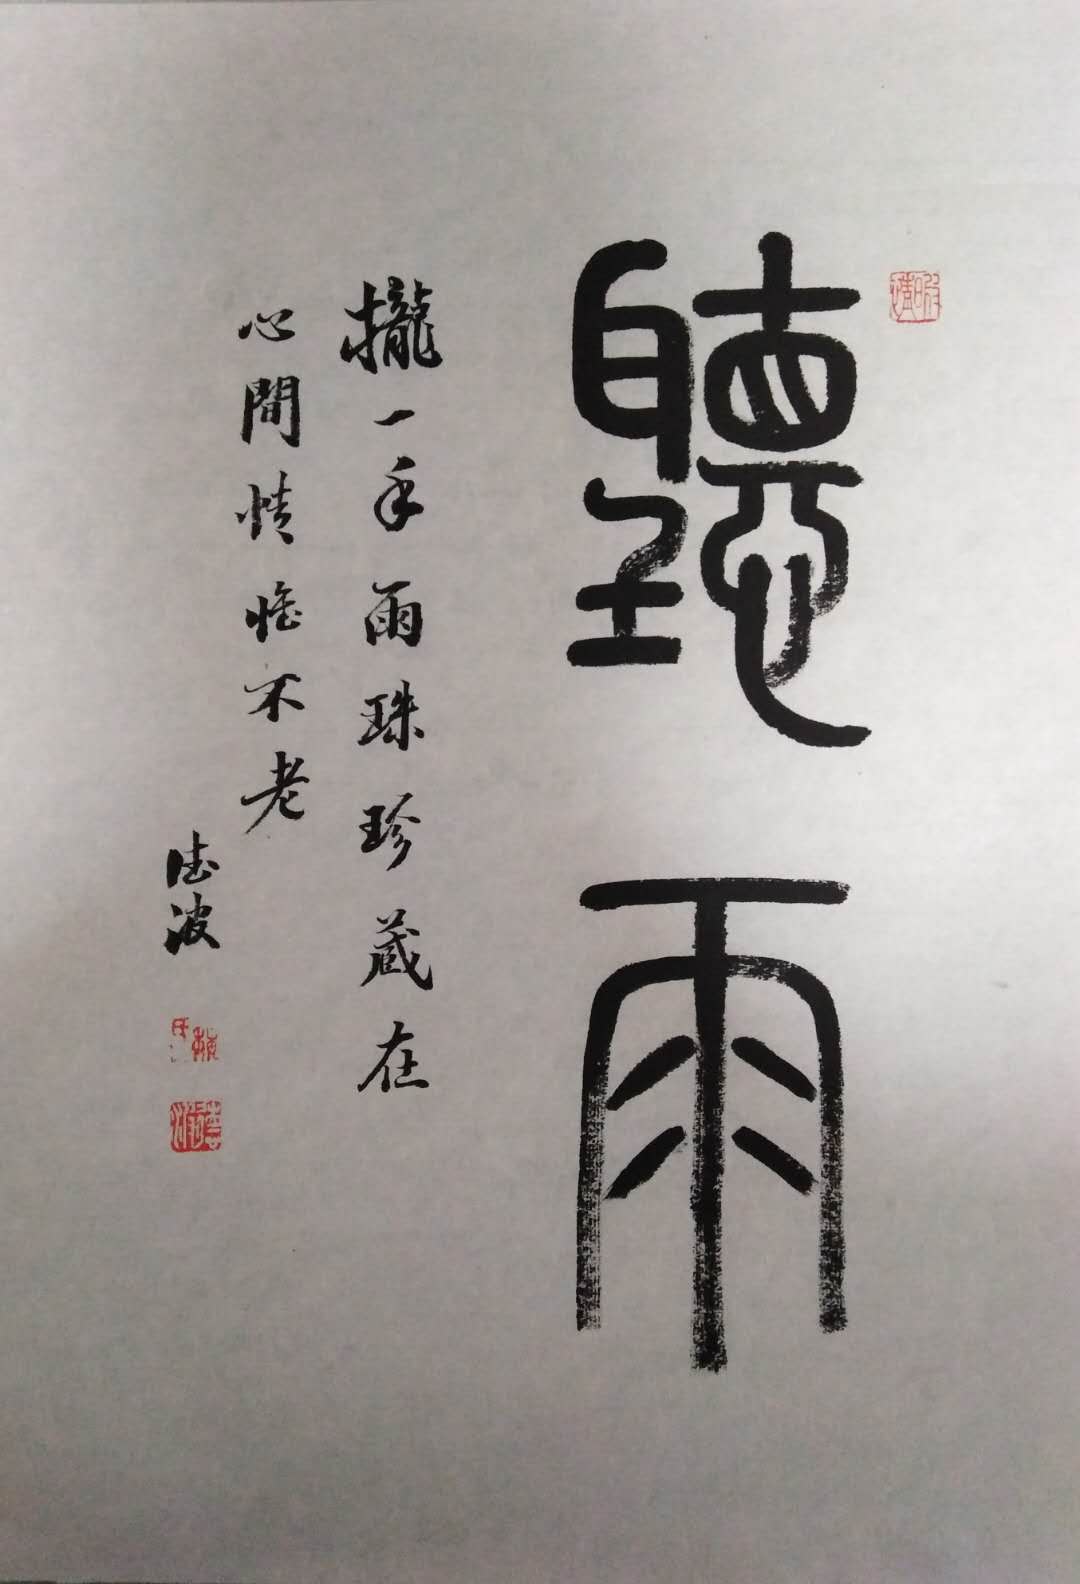 聽雨
攏一手雨珠珍藏在
心間情懷不老
德波